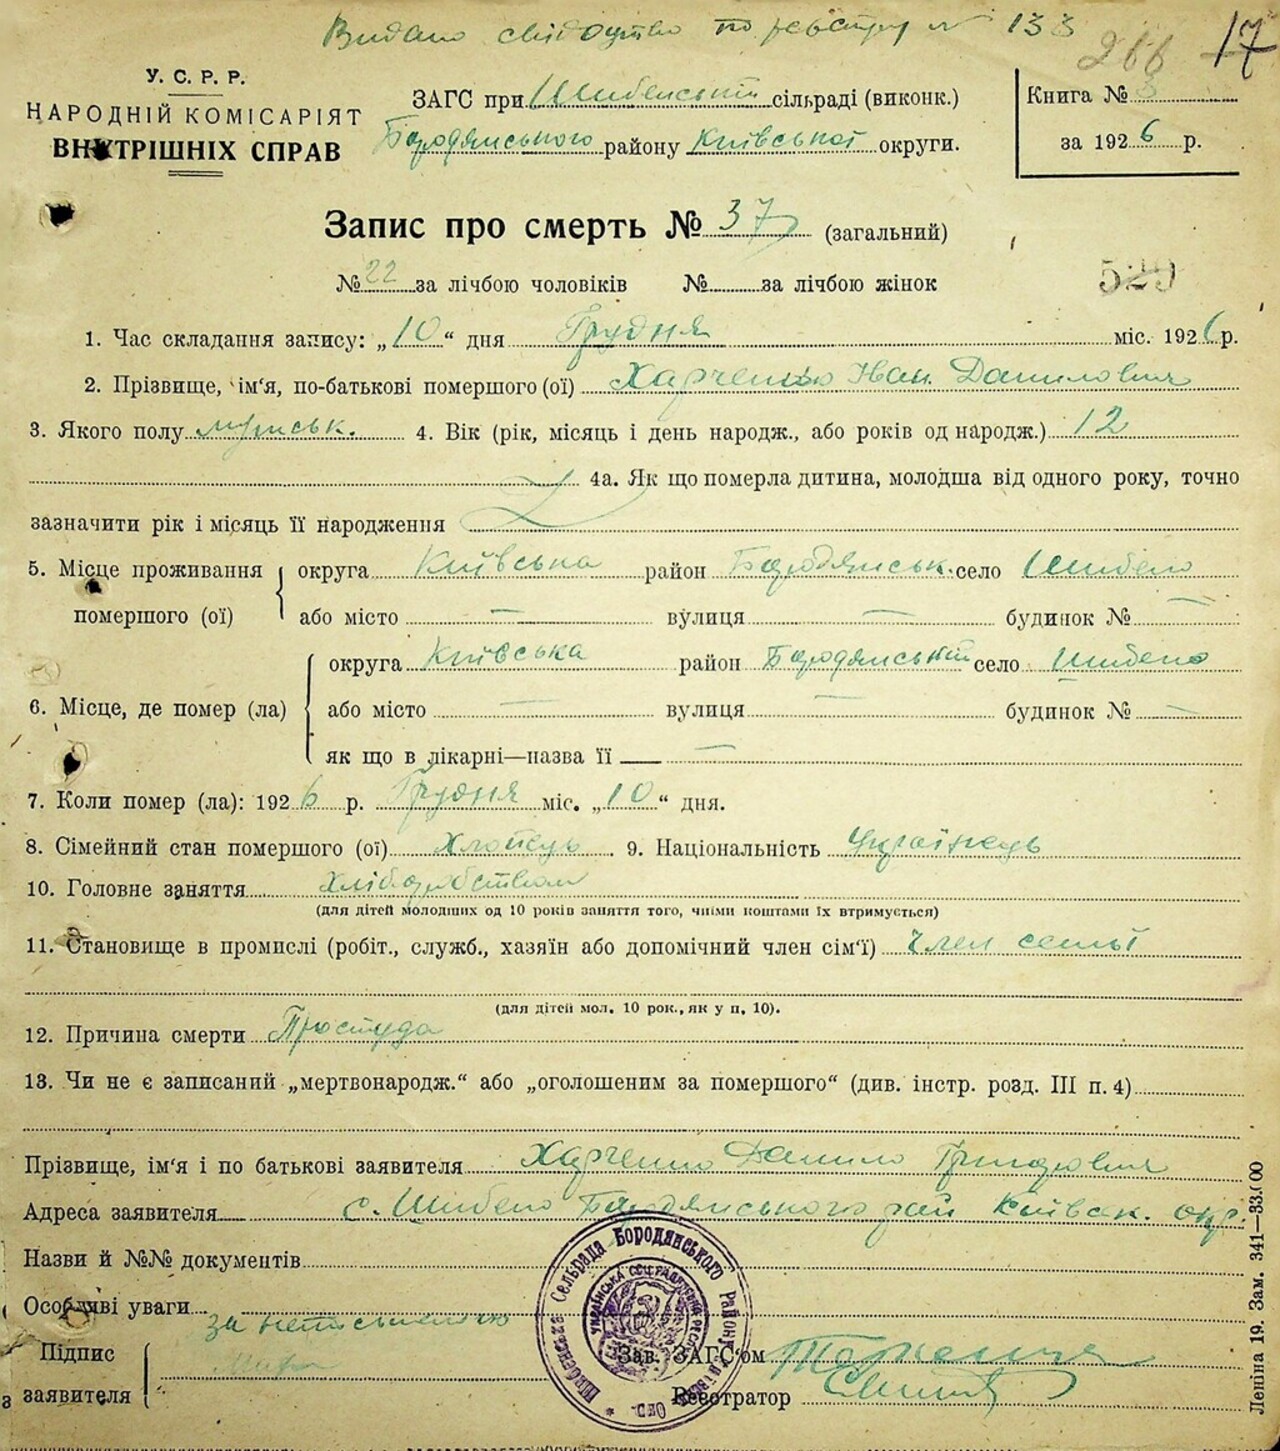 Видано свідоцтво по реєстру № 133
266 17
У. С. Р. Р.
НАРОДНІЙ КОМІСАРІЯТ
ВНУТРІШНІХ СПРАВ
ЗАГС при Шибенській сільраді (виконк.)
Бородянського району Київської округи.
Книга № 3
за 1926 р.
Запис про смерть № 37 (загальний)
№ 22 за лічбою чоловіків № за лічбою жінок
529
1. Час складання запису: „10“ дня Грудня міс. 1926 р.
2. Прізвище, ім‘я, по-батькові помершого (ої) Харченко Іван Данилович
3. Якого полу мужськ. 4. Вік (рік, місяць і день народж., або років од народж.) 12
4а. Як що померла дитина, молодша від одного року, точно
зазначити рік і місяць її народження
5. Місце проживання помершого (ої) округа Київська район Бородянськ. село Шибено
або місто — вулиця — будинок № —
6. Місце, де помер (ла) округа Київська район Бородянський село Шибено
або місто — вулиця — будинок № —
як що в лікарні—назва її —
7. Коли помер (ла): 1926 р. Грудня міс. „10“ дня.
8. Сімейний стан помершого (ої) Хлопець 9. Національність Українець
10. Головне заняття Хліборобством
(для дітей молодших од 10 років заняття того, чиїми коштами їх втримується)
11. Становище в промислі (робіт., служб., хазяїн або допомічний член сім‘ї) Член семьї
(для дітей мол. 10 рок., як у п. 10).
12. Причина смерти Простуда
13. Чи не є записаний „мертвонародж.“ або „оголошеним за помершого“ (див. інстр. розд. III п. 4)
Прізвище, ім‘я і по батькові заявителя Харченко Данило Григорович
Адреса заявителя с. Шибено Бородянського рай Київськ. окр.
Назви й №№ документів
Особливі уваги
за неписьменого
Підпис
заявителя
Зав. ЗАГС‘ом
Реєстратор
Шибенська Сельрада Бородянського Району Київськ. Окр.
Леніна 19. Зам. 341—33.000